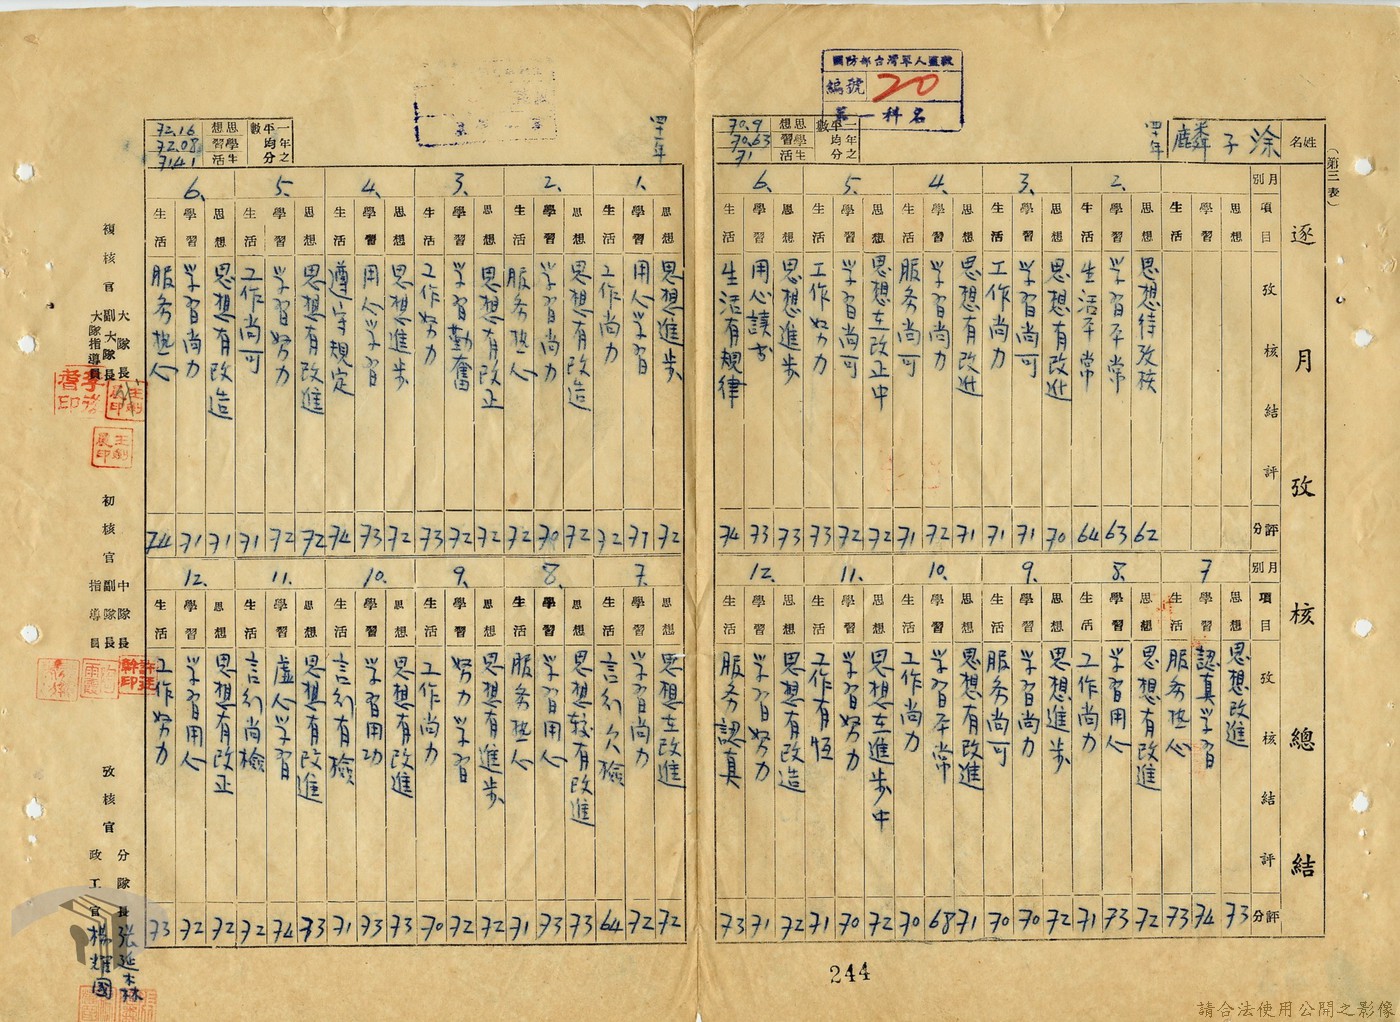 國防部台灣軍人監獄
編號 20
第一科名
（第三表）
逐月攷核總結
姓名 涂子麟
四十年
一年之平均分數
思想 70.9
學習 70.63
生活 71
月別
項目 思想 學習 生活
攷核結評
評分
2.
思想 思想待攷核 62
學習 學習平常 63
生活 生活平常 64
3.
思想 思想有改進 70
學習 學習尚可 71
生活 工作尚力 71
4.
思想 思想有改進 71
學習 學習尚力 72
生活 服务尚可 71
5.
思想 思想在改正中 72
學習 学習尚可 72
生活 工作努力 73
6.
思想 思想進步 73
學習 用心讀书 73
生活 生活有規律 74
月別
項目
攷核結評
評分
7
思想 思想改進 73
學習 認真学習 74
生活 服务热心 73
8.
思想 思想有改進 72
學習 学習用心 73
生活 工作尚力 71
9.
思想 思想進步 72
學習 学習尚力 70
生活 服务尚可 70
10.
思想 思想有改進 71
學習 学習平常 68
生活 工作尚力 70
11.
思想 思想在進步中 72
學習 学習努力 70
生活 工作有恆 71
12.
思想 思想有改造 72
學習 学習努力 71
生活 服务認真 73
四十一年
一年之平均分數
思想 72.16
學習 72.08
生活 71.41
1.
思想 思想進步 72
學習 用心学習 71
生活 工作尚力 72
2.
思想 思想有改造 72
學習 学習尚力 70
生活 服务热心 72
3.
思想 思想有改正 72
學習 学習勤奮 72
生活 工作努力 73
4.
思想 思想進步 72
學習 用心学習 73
生活 遵守規定 74
5.
思想 思想有改進 72
學習 学習努力 72
生活 工作尚可 71
6.
思想 思想有改造 71
學習 学習尚力 71
生活 服务热心 74
7.
思想 思想在改進 72
學習 学習尚力 72
生活 言行欠檢 64
8.
思想 思想較有改進 73
學習 学習用心 73
生活 服务热心 71
9.
思想 思想有進步 72
學習 努力学習 72
生活 工作尚力 70
10.
思想 思想有改進 73
學習 学習用功 73
生活 言行有檢 71
11.
思想 思想有改進 73
學習 虛心学習 74
生活 言行尚檢 72
12.
思想 思想有改正 72
學習 学習用心 72
生活 工作努力 73
複核官 大隊長 副大隊長 大隊指導員
初核官 中隊長 副隊長 指導員
攷核官 分隊長 張延森 政工官 楊耀國
244
請合法使用公開之影像